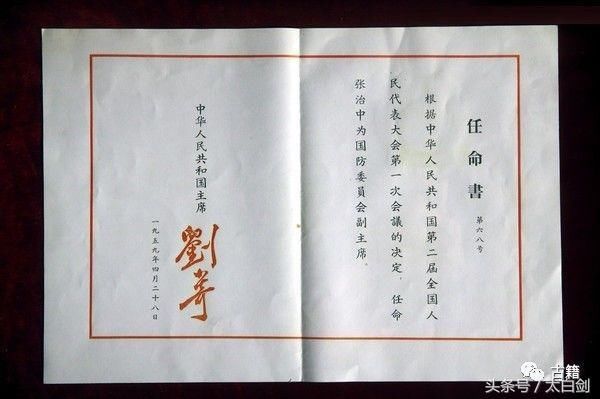 任命書
第六八号
根据中华人民共和国第二届全国人
民代表大会第一次会議的决定，任命
张治中为国防委員会副主席
中华人民共和国主席
劉少奇
一九五九年四月二十八日
古籍
头条号 / 太白剑